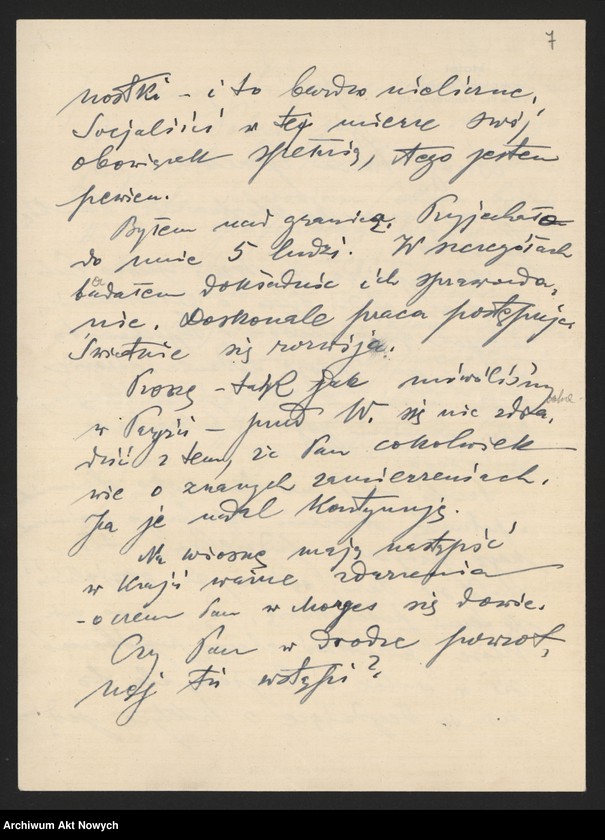 7
nostki – i to bardzo nieliczne.
Socjaliści w tej mierze swój
obowiązek spełnią, tego jestem
pewien.
Byłem nad granicą. Przyjechało
do mnie 5 ludzi. W szczegółach
badałem dokładnie ich sprawozda-
nie. Doskonale praca postępuje,
świetnie się rozwija.
Proszę – tak jak mówiliśmy
w Paryżu – przed W. się nie zdra-
dzić z tem, że Pan cokolwiek
wie o znanych zamierzeniach.
Ja je nadal kontynuuję.
Na wiosnę mają nastąpić
w Kraju ważne zdarzenia
– o czem Pan w Morges się dowie.
Czy Pan w drodze powrot-
nej tu wstąpi?
Archiwum Akt Nowych